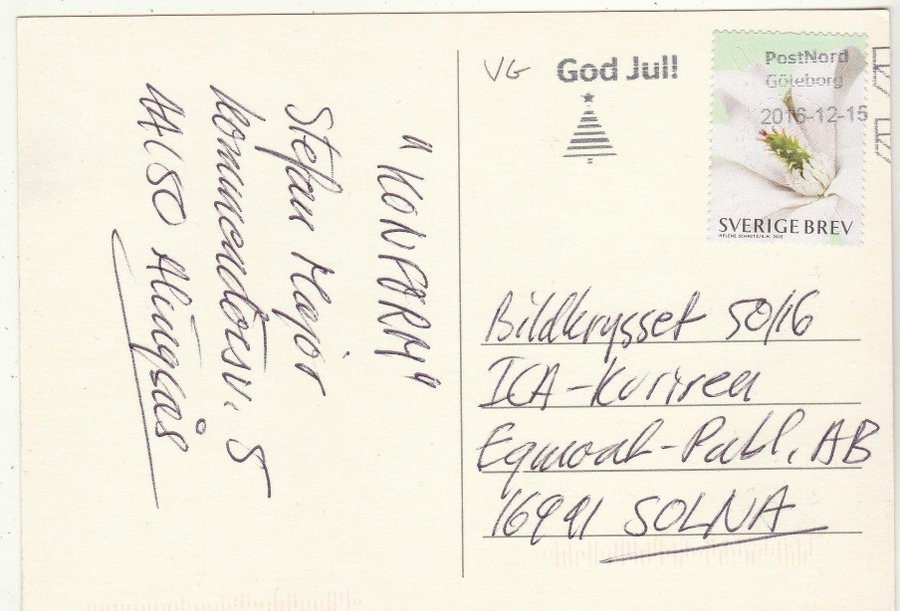 "KONFORM"
Stefan Major
Kommendörsv. 5
44150 Alingsås
VG
God Jul!
PostNord
Göteborg
2016-12-15
SVERIGE BREV
Bildkrysset 50/16
ICA-Kuriren
Egmont-Publ. AB
16991 SOLNA